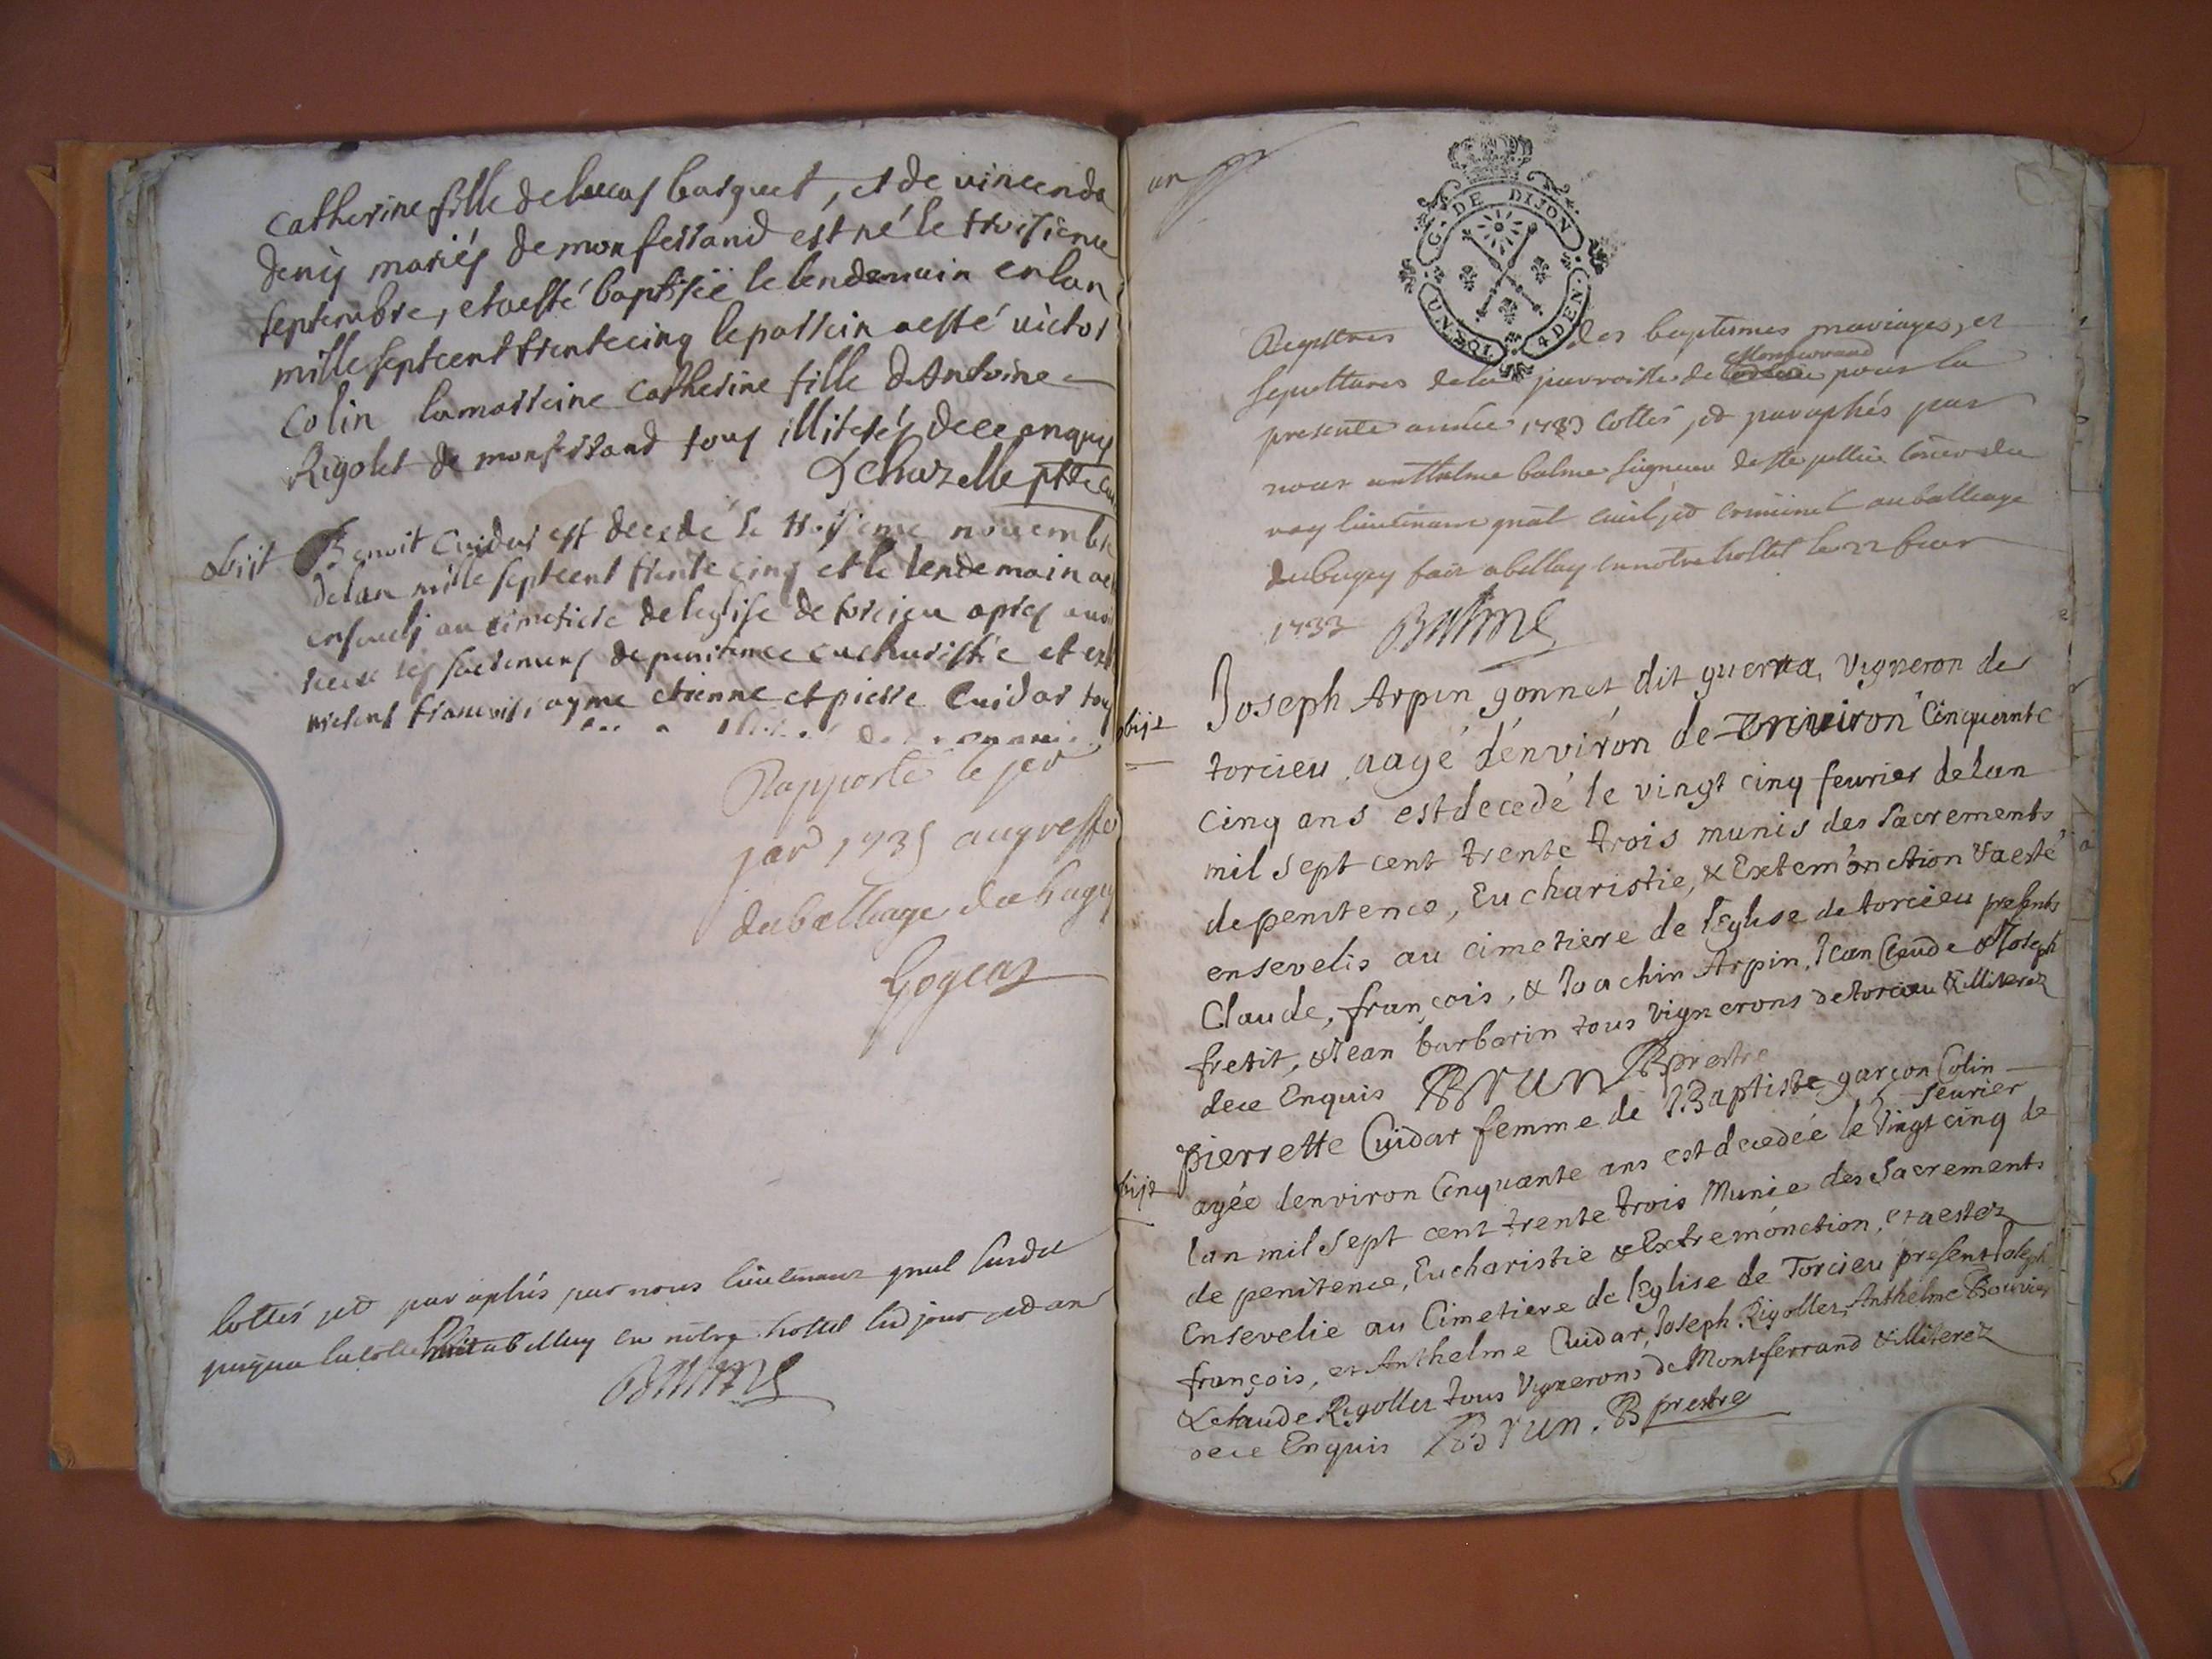 Catherine fille de lucas barquet, et de vincende
denis mariés de monferrand est né le troisieme
septembre, et a esté baptisée le lendemain en lan
mille septcent trentecinq le parrein a esté victor
Colin la marreine Catherine fille d'Antoine
Rigolet de monferrand tous illiterés de ce enquis
Dechazelle ptre cu
obiit Benoit Cuidar est decedé le troisieme novembre
de lan mille septcent trente cinq et le lendemain
enseveli au cimetiere de leglise de torcieu apres avoi
receu les sacremens de penitence eucharistie et ext
presens francois, ayme etienne et pierre Cuidar tous
Rapporté le
1735 au greffe
du balliage du bugey
Gogeas
Cottés et paraphés par nous lieutenant gnal susdit
a belley en nôtre hostel led jour et an
Balme
un
G. DE DIJON
UN SOL
4 DEN.
Registres des baptesmes mariages, et
sepultures de la parroisse de Montferrand pour la
presente année 1733 Cottés, et paraphés par
nous anthelme balme seigneur de ste jullie Coner du
roy lieutenant gnal civil, et criminel au balliage
du bugey fait a belley en notre hostel le 22
1733 Balme
obijt Joseph Arpin gonnet dit guerra, Vigneron de
torcieu aagé d'environ de environ Cinquante
cinq ans est decedé le vingt cinq feurier de lan
mil sept cent trente trois munis des Sacrements
de penitence, Eucharistie, & Extem'onction & a esté
ensevelis au cimetiere de l'Eglise de torcieu presents
Claude, françois, & Joachin Arpin, Jean Claude & Joseph
fretit, & Jean barbarin tous vignerons de torcieu & illiterez
de ce Enquis BRUN B prestre
obijt pierrette Cuidar femme de J. Baptiste garçon Colin
feurier
agée denviron Cinquante ans est decedée le vingt cinq de
lan mil sept cent trente trois Munie des Sacrements
de penitence, Eucharistie & Extremonction, et a estez
Ensevelie au Cimetiere de lEglise de Torcieu present Joseph
françois, et Anthelme Cuidar, Joseph Rigollet, Anthelme Bouvier
& Claude Rigollet tous Vignerons de Montferrand & illiterez
de ce Enquis BRUN. B prestre